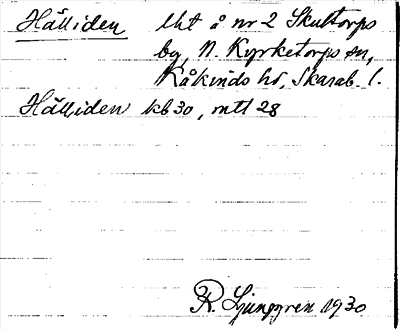 Hälliden Uht å nr 2 Skultorps
by, N. Kyrketorps sn,
Kåkinds hd, Skarab. l.
Hälliden kb 30, mtl 28
R. Ljunggren 1930